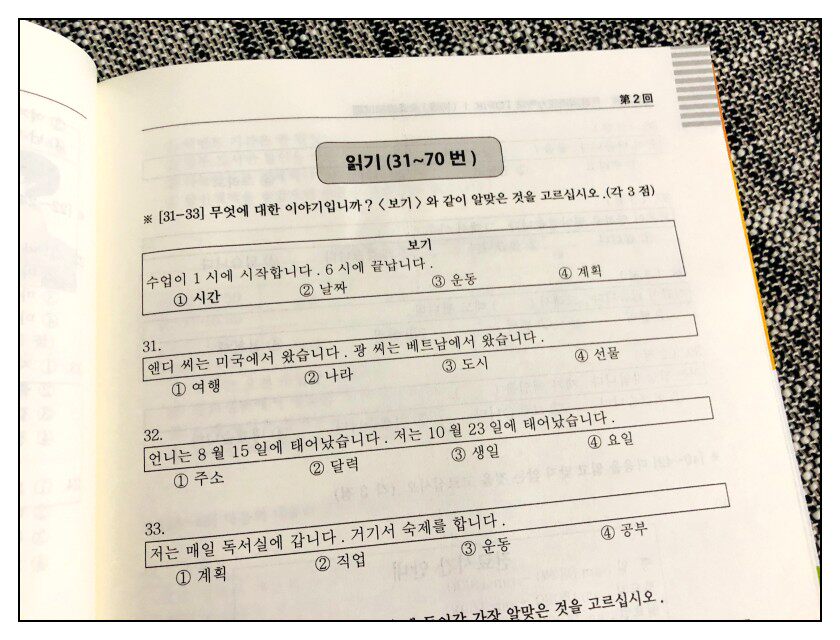 第2回
읽기 (31~70 번 )
※ [31-33] 무엇에 대한 이야기입니까? < 보기 > 와 같이 알맞은 것을 고르십시오 .(각 3 점)
보기
수업이 1 시에 시작합니다 . 6 시에 끝납니다 .
① 시간 ② 날짜 ③ 운동 ④ 계획
31.
앤디 씨는 미국에서 왔습니다 . 광 씨는 베트남에서 왔습니다 .
① 여행 ② 나라 ③ 도시 ④ 선물
32.
언니는 8 월 15 일에 태어났습니다 . 저는 10 월 23 일에 태어났습니다 .
① 주소 ② 달력 ③ 생일 ④ 요일
33.
저는 매일 독서실에 갑니다 . 거기서 숙제를 합니다 .
① 계획 ② 직업 ③ 운동 ④ 공부
가장 알맞은 것을 고르십시오 .